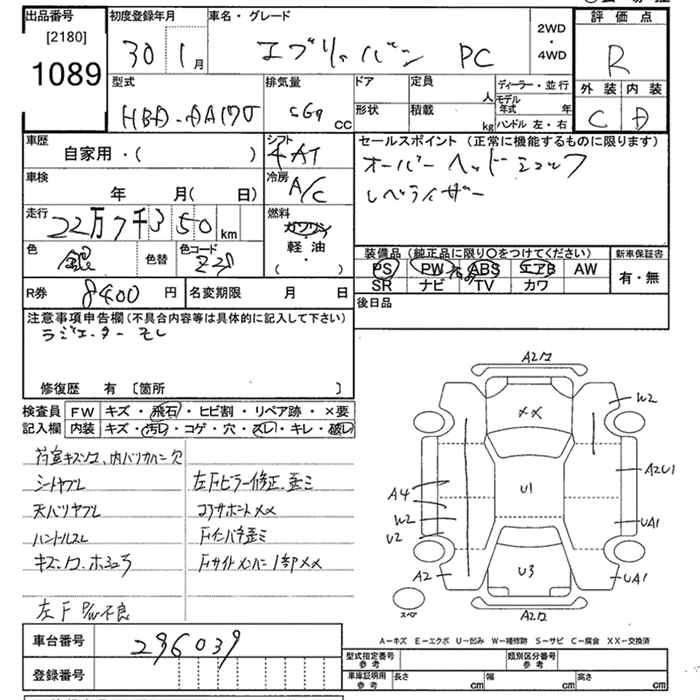 出品番号
[2180]
1089
初度登録年月
30 1月
車名・グレード
エブリィバン PC
2WD
・
4WD
評価点
R
外装 内装
C D
型式
HBD-DA17V
排気量
660 cc
ドア
形状
定員
人
積載
kg
ディーラー・並行
モデル年式 年
ハンドル 左・右
車歴
自家用・( )
シフト
4AT
車検
年 月( 日)
冷房
A/C
走行
22万7千350km
燃料
ガソリン
軽・油
( )
色
銀
色替
色コード
Z2S
セールスポイント(正常に機能するものに限ります)
オーバーヘッドシェルフ
レベライザー
装備品(純正品に限り○をつけてください)
PS PW ABS エアB AW
SR ナビ TV カワ
新車保証書
有・無
R券 8400円
名変期限 月 日
後日品
注意事項申告欄(不具合内容等は具体的に記入して下さい)
ラジエーターモレ
修復歴 有 〔箇所 〕
検査員
記入欄
FW キズ・飛石・ヒビ割・リペア跡・×要
内装 キズ・汚レ・コゲ・穴・スレ・キレ・破レ
荷室キズ、凹、内バリカバー欠
シートヤブレ
天バリヤブレ
ハンドルスレ
キズ、凹、ホシュウ
左F P/W不良
左Fピラー修正、歪ミ
コアサポートXX
Fインパネ歪ミ
Fサイドメンバー1部XX
A2凹
XX
W2
A2U1
UA1
UA1
U1
A4
W2
U2
A2
U3
A2凹
スペア
A-キズ E-エクボ U-凹み W-補修跡 S-サビ C-腐食 XX-交換済
車台番号
296039
登録番号
型式指定番号
参考
類別区分番号
参考
車庫証明用
参考
長さ cm
幅 cm
高さ cm